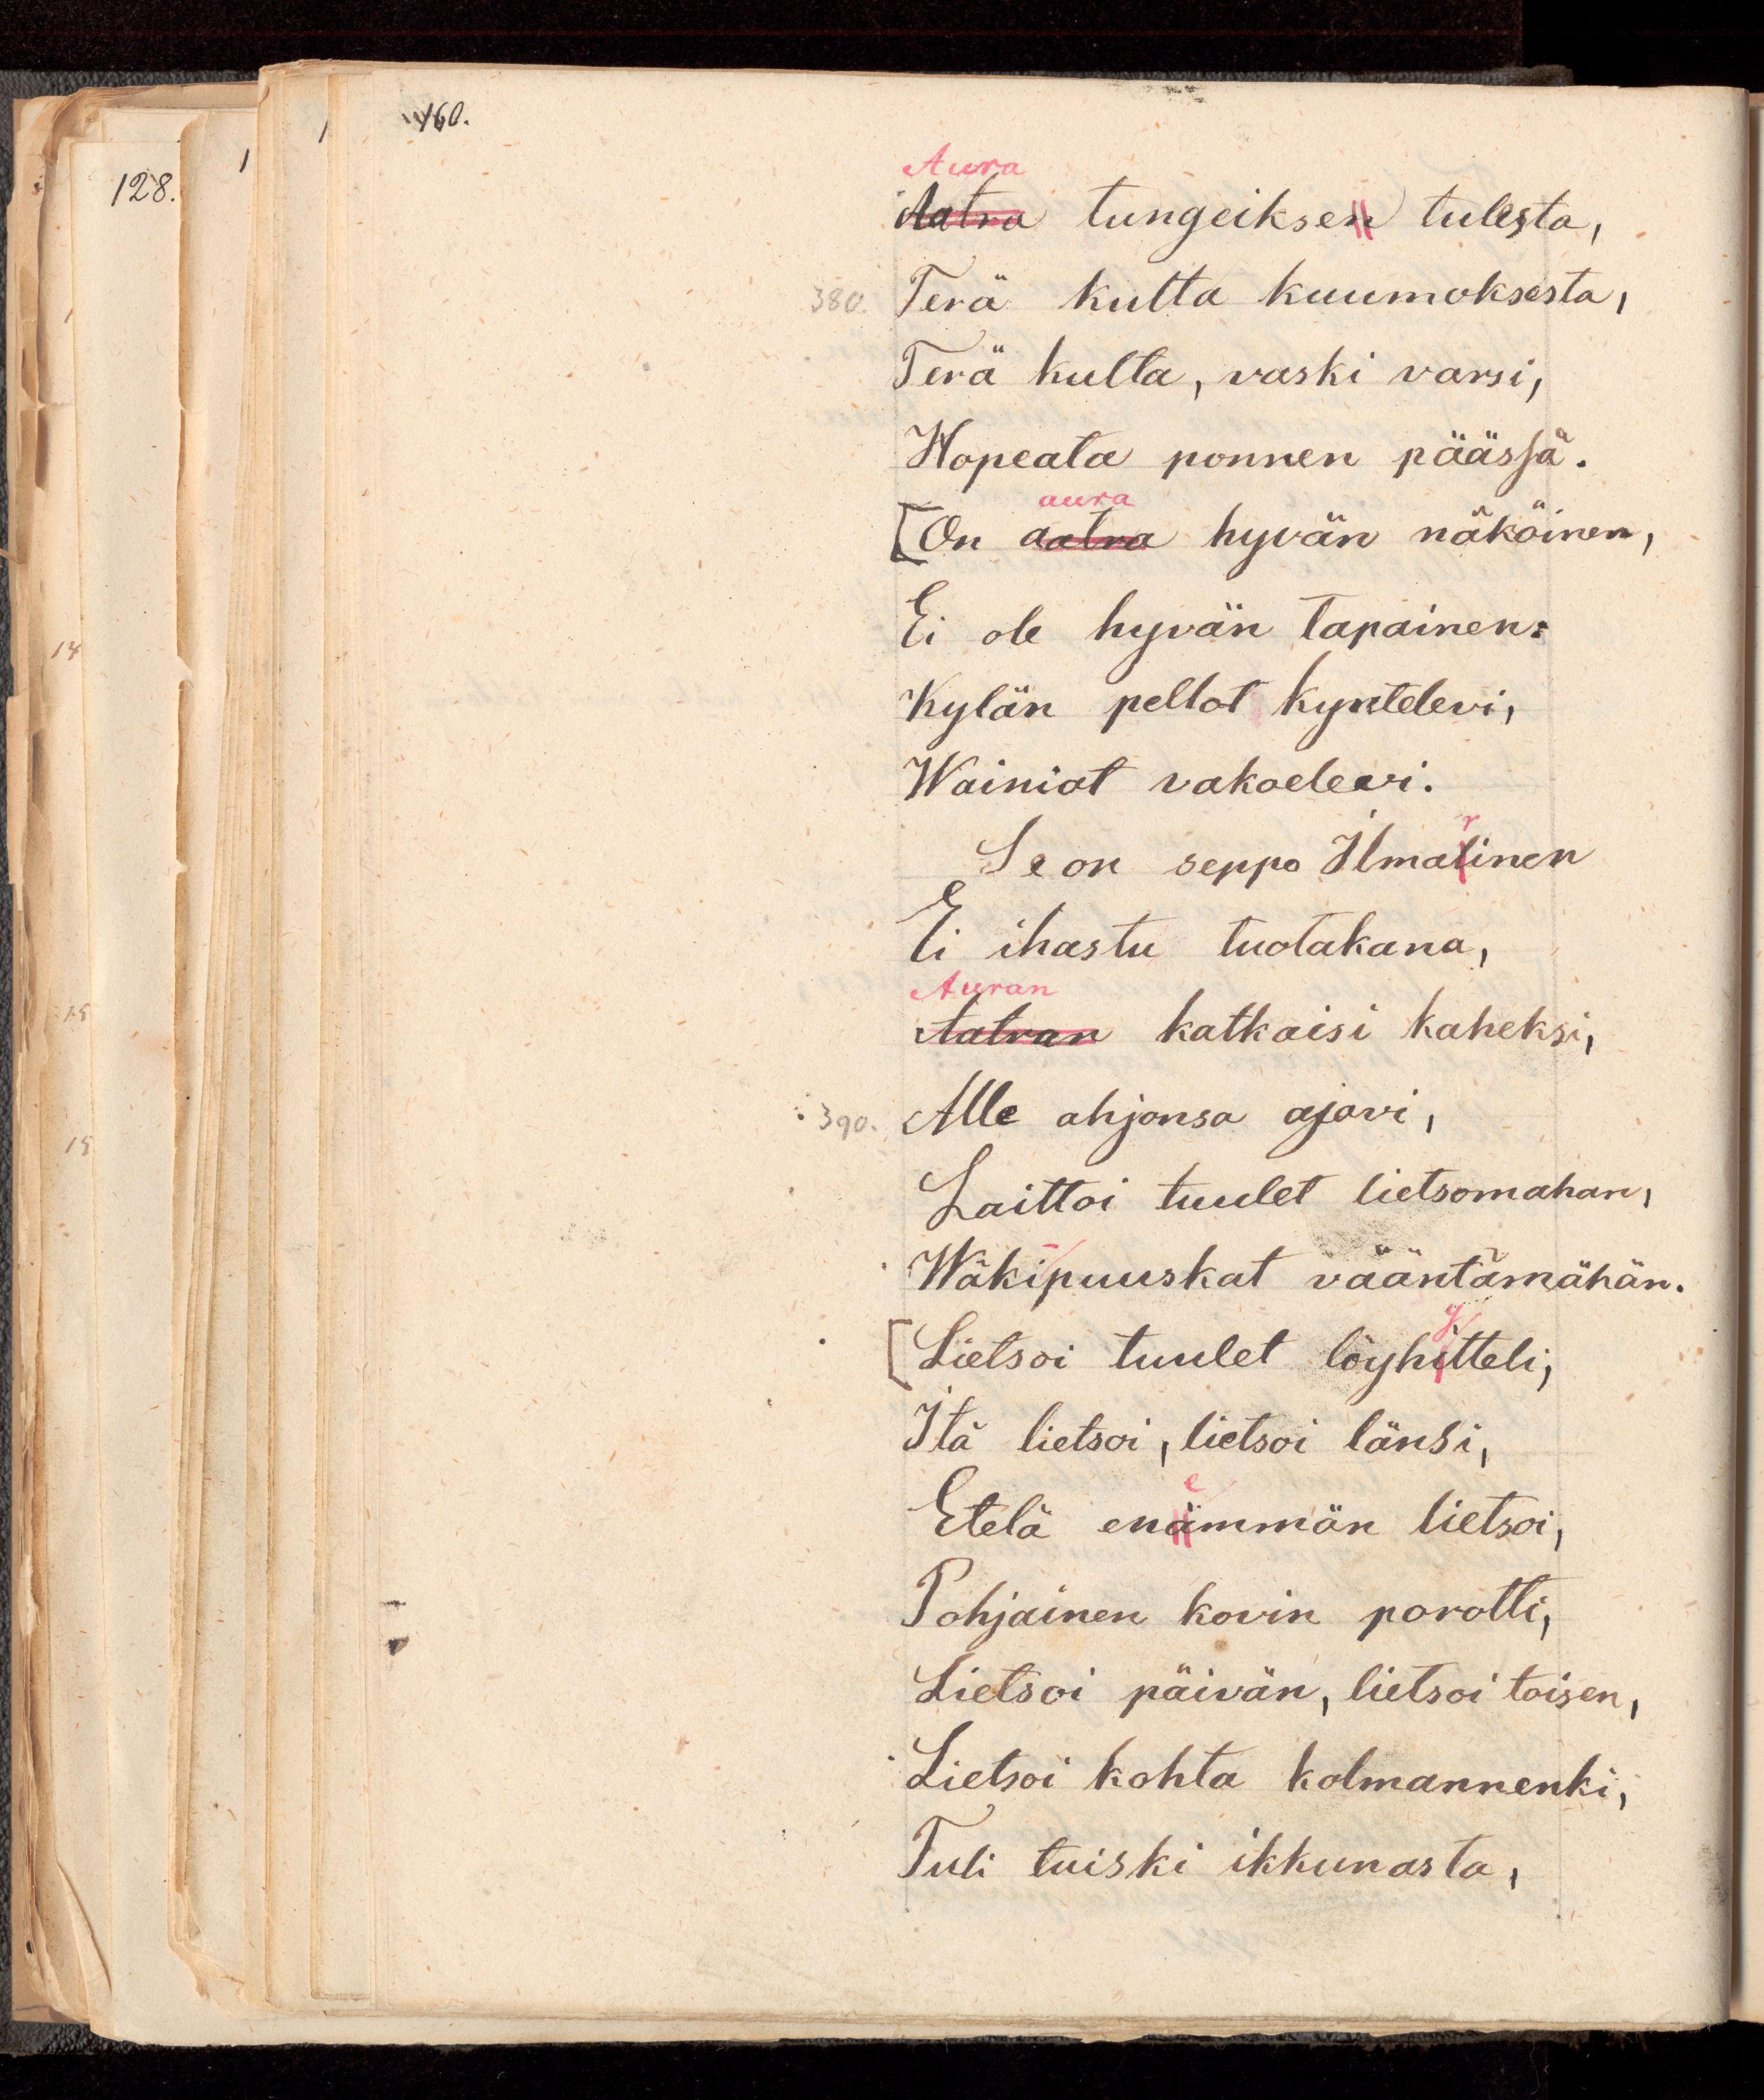 160.
128.
Aura
Aatra tungeiksen tulesta,
380. Terä kulta kuumoksesta,
Terä kulta, vaski varsi,
Hopeata ponnen päässä.
aura
[On aatra hyvän näköinen,
Ei ole hyvän tapainen:
Kylän pellot kyntelevi,
Wainiot vakoelevi.
r
Se on seppo Ilmalinen
Ei ihastu tuotakana,
Auran
Aatran katkaisi kaheksi,
390. Alle ahjonsa ajavi,
Laittoi tuulet lietsomahan,
Wäkipuuskat vääntämähän.
y
[Lietsoi tuulet löyhitteli,
Itä lietsoi, lietsoi länsi,
e
Etelä enämmän lietsoi,
Pohjainen kovin porotti,
Lietsoi päivän, lietsoi toisen,
Lietsoi kohta kolmannenki,
Tuli tuiski ikkunasta,